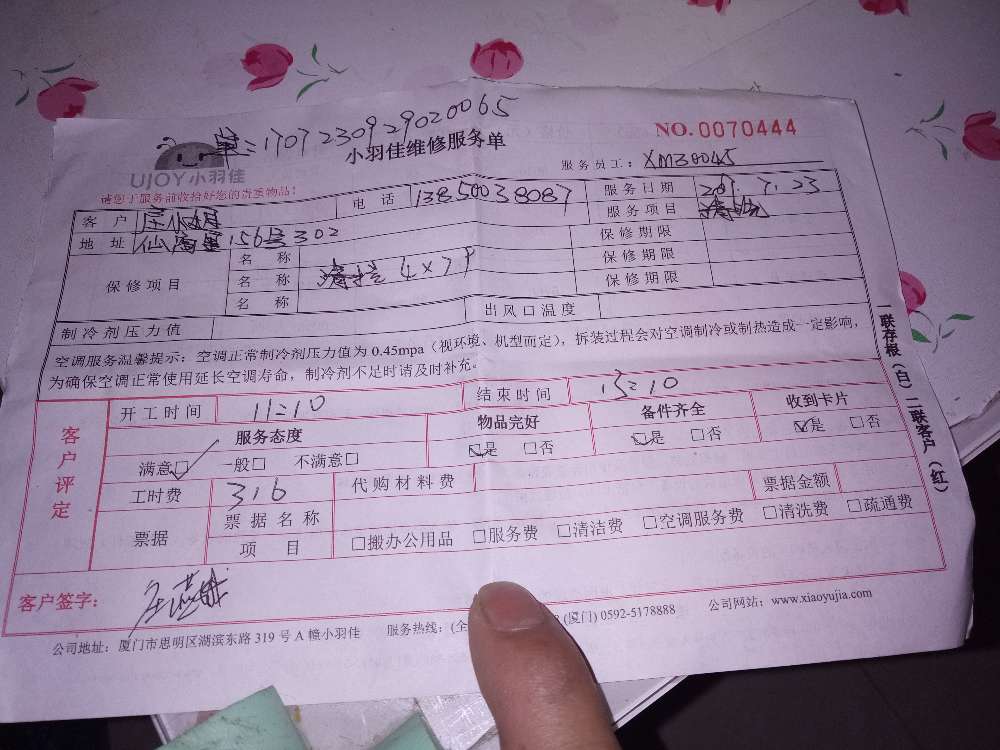 单:1707230929020065
NO.0070444
小羽佳维修服务单
UJOY小羽佳
服务员工:XM30045
请您于服务前收拾好您的贵重物品!
客户 电话 13850038087 服务日期 7.23
地址 156号302 服务项目 清洗
保修项目 名称 保修期限
名称 清洗 保修期限
名称 保修期限
制冷剂压力值 出风口温度
空调服务温馨提示:空调正常制冷剂压力值为0.45mpa(视环境、机型而定),拆装过程会对空调制冷或制热造成一定影响,
为确保空调正常使用延长空调寿命,制冷剂不足时请及时补充。
客户评定
开工时间 11:10 结束时间 13:10
服务态度 物品完好 备件齐全 收到卡片
满意□ 一般□ 不满意□ □是 □否 □是 □否 □是 □否
工时费 316 代购材料费 票据金额
票据 票据名称
项目 □搬办公用品 □服务费 □清洁费 □空调服务费 □清洗费 □疏通费
客户签字:
公司地址:厦门市思明区湖滨东路319号A幢小羽佳 服务热线:(全 (厦门)0592-5178888 公司网站:www.xiaoyujia.com
一联存根(白)二联客户(红)